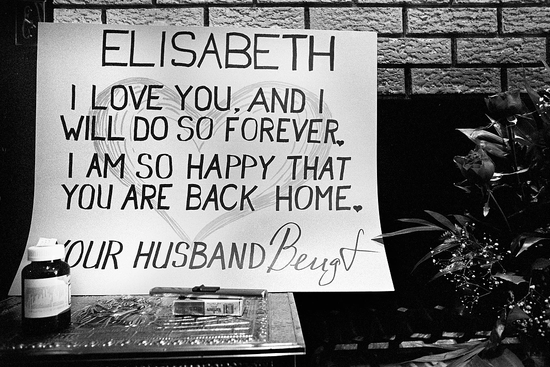 ELISABETH
I LOVE YOU, AND I
WILL DO SO FOREVER.
I AM SO HAPPY THAT
YOU ARE BACK HOME.
YOUR HUSBAND Bengt